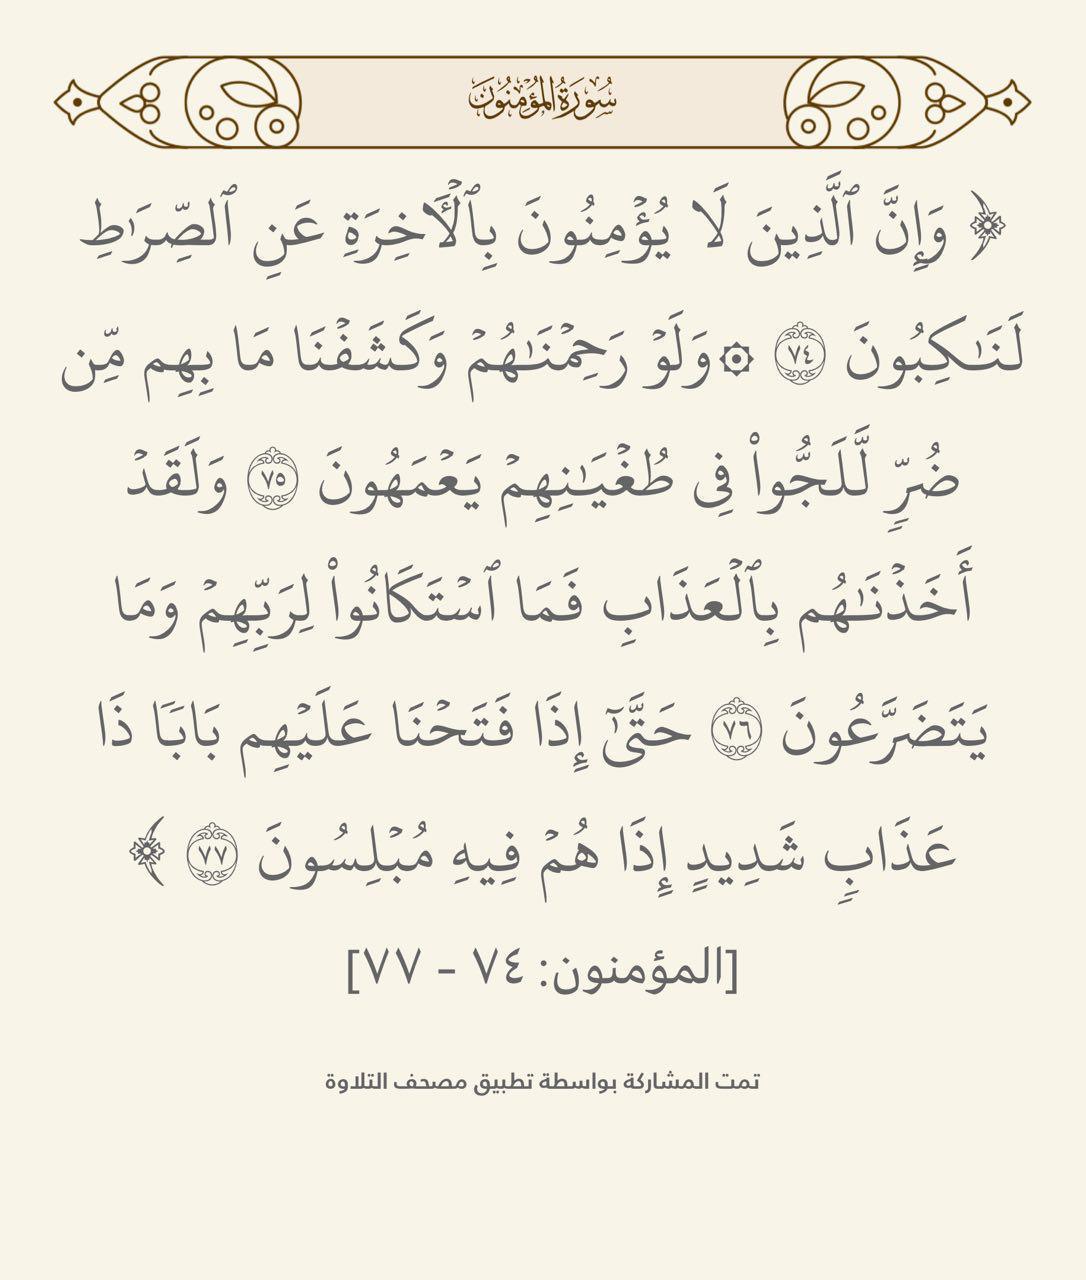 سُورَةُ المُؤۡمِنُونَ
﴿ وَإِنَّ ٱلَّذِينَ لَا يُؤۡمِنُونَ بِٱلۡأٓخِرَةِ عَنِ ٱلصِّرَٰطِ
لَنَٰكِبُونَ ٧٤ ۞ وَلَوۡ رَحِمۡنَٰهُمۡ وَكَشَفۡنَا مَا بِهِم مِّن
ضُرّٖ لَّلَجُّواْ فِي طُغۡيَٰنِهِمۡ يَعۡمَهُونَ ٧٥ وَلَقَدۡ
أَخَذۡنَٰهُم بِٱلۡعَذَابِ فَمَا ٱسۡتَكَانُواْ لِرَبِّهِمۡ وَمَا
يَتَضَرَّعُونَ ٧٦ حَتَّىٰٓ إِذَا فَتَحۡنَا عَلَيۡهِم بَابٗا ذَا
عَذَابٖ شَدِيدٍ إِذَا هُمۡ فِيهِ مُبۡلِسُونَ ٧٧ ﴾
[المؤمنون: ٧٤ - ٧٧]
تمت المشاركة بواسطة تطبيق مصحف التلاوة